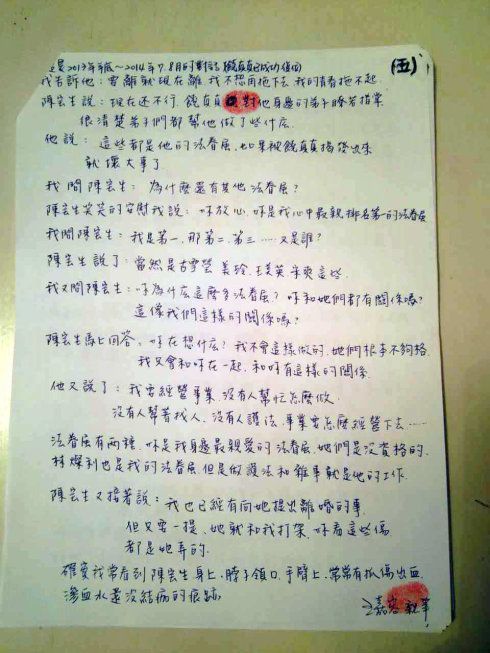 (五)
這是2013年年底~2014年7.8月的對話
我告訴他：要離就現在離，我不想再拖下去，我的青春拖不起.
陳宏生說：現在还不行，饒真真 對他身邊的弟子瞭若指掌
很清楚弟子們都幫他做了些什庅
他說：這些都是他的法眷屬，如果被饒真真揭發出來
就壞大事了
我問陳宏生：為什麼還有其他法眷屬？
陳宏生笑笑的安慰我說：妳放心，妳是我心中最親，排名第一的法眷屬
我問陳宏生：我是第一，那第二，第三……又是誰？
陳宏生說了：當然是古雪瑩 美玲
我又問陳宏生：你為什庅這麼多法眷屬？你和她們都有關係嗎？
這像我們這樣的關係嗎？
陳宏生馬上回答，妳在想什庅？我不會這樣做的，她們根本不夠格
我又會和妳在一起，和妳有這樣的關係.
他又說了：我要經營事業，沒有人幫忙怎麼做
沒有人幫著找人，沒有人護法，事業要怎麼經營下去……
法眷屬有兩種，妳是我身邊最親愛的法眷屬，她們是沒資格的.
林燦利也是我的法眷屬，但是做護法和雜事就是他的工作.
陳宏生又接著說：我也已經有向她提出離婚的事.
但只要一提，她就和我打架，妳看這些傷
都是她弄的.
確實我常看到陳宏生身上，脖子領口，手臂上，常常有抓傷出血
滲血水還沒結痂的痕跡.
嘉容 親筆